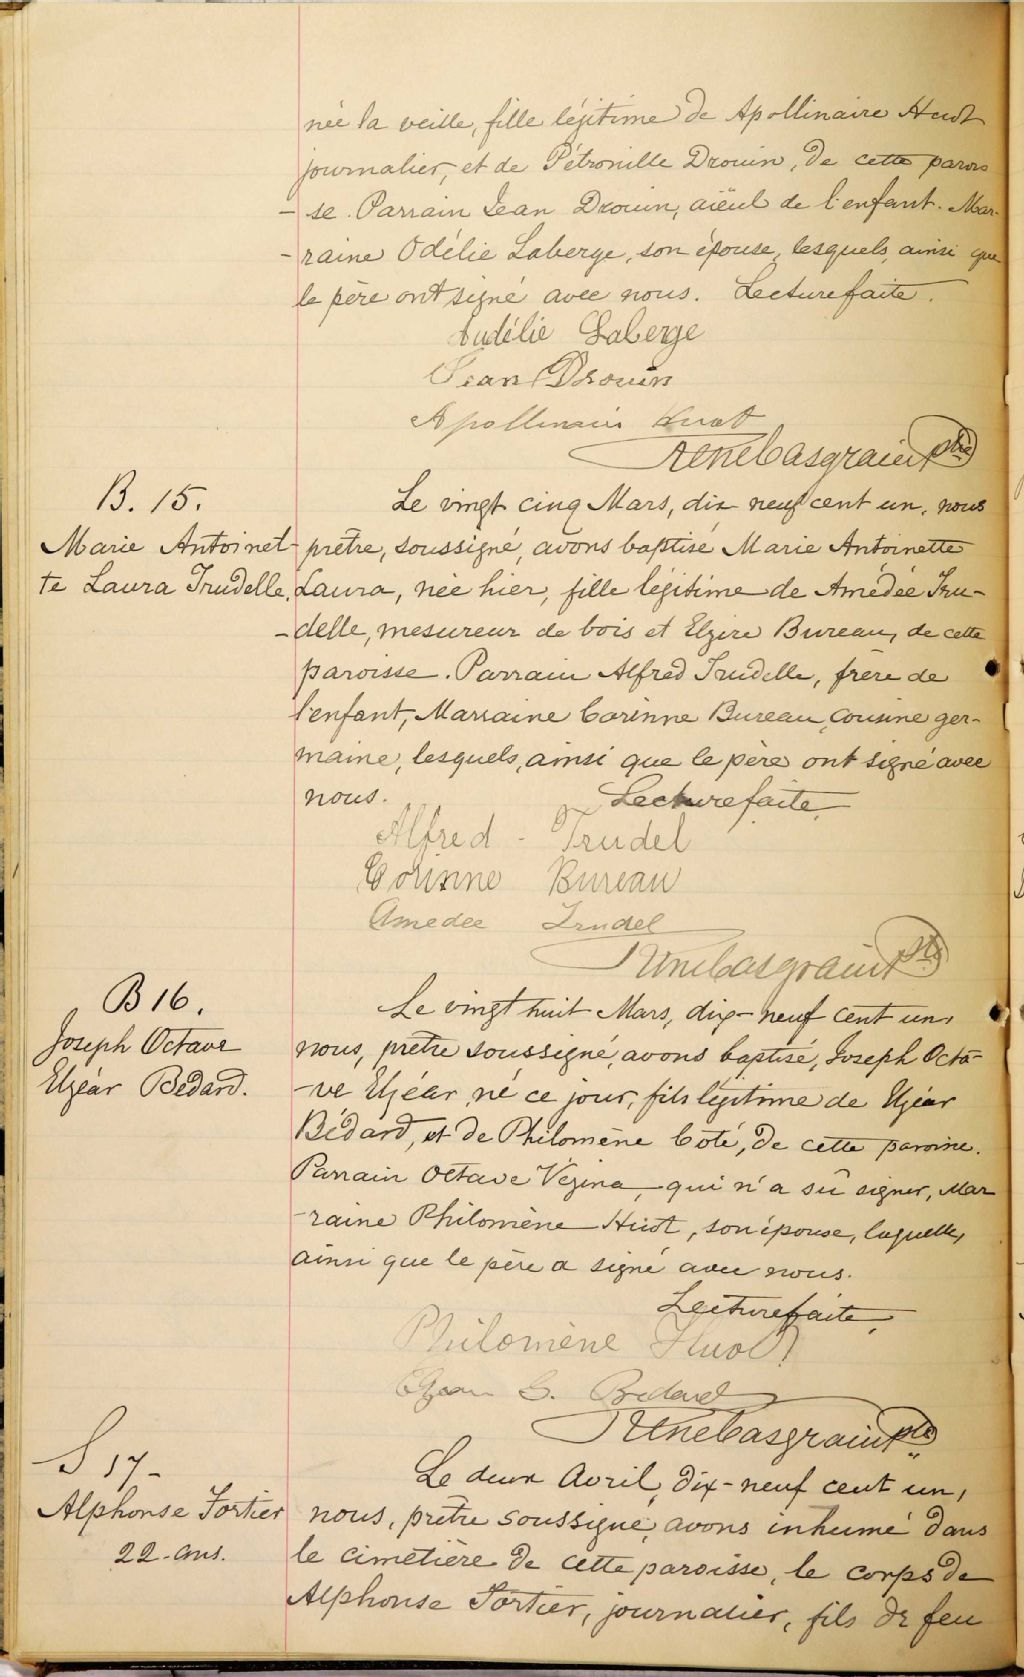 née la veille, fille légitime de Apollinaire Huot
journalier, et de Pétronille Drouin, de cette parois
- se. Parrain Jean Drouin, aïeul de l'enfant. Mar-
- raine Odélie Laberge, son épouse, lesquels, ainsi que
le père ont signé avec nous. Lecture faite.
Audélie Laberge
Jean Drouin
Apollinair Huot
René Casgrain ptre
B. 15.
Marie Antoinet-
te Laura Trudelle.
Le vingt cinq Mars, dix neuf cent un, nous
prêtre, soussigné, avons baptisé Marie Antoinette
Laura, née hier, fille légitime de Amédée Tru-
- delle, mesureur de bois et Elzire Bureau, de cette
paroisse. Parrain Alfred Trudelle, frère de
l'enfant, Marraine Corinne Bureau, cousine ger-
maine, lesquels, ainsi que le père ont signé avec
nous. Lecture faite.
Alfred - Trudel
Corinne Bureau
Amedee Trudel
René Casgrain ptre
B 16.
Joseph Octave
Elzéar Bédard.
Le vingt huit Mars, dix-neuf cent un,
nous, prêtre soussigné, avons baptisé, Joseph Octa-
- ve Elzéar, né ce jour, fils légitime de Elzéar
Bédard, et de Philomène Côté, de cette paroisse.
Parrain Octave Vézina, qui n'a sû signer, Mar
- raine Philomène Huot, son épouse, laquelle,
ainsi que le père a signé avec nous.
Lecture faite.
Philomène Huot
Elzear Bedard
René Casgrain ptre
S 17-
Alphonse Fortier
22-ans.
Le deux Avril, dix-neuf cent un,
nous, prêtre soussigné, avons inhumé dans
le cimetière de cette paroisse, le corps de
Alphonse Fortier, journalier, fils de feu